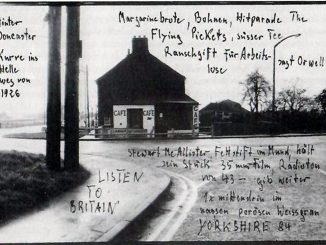 hinter
Doncaster
Kurve ins
Helle
weg von
1926
Margarinebrote, Bohnen, Hitparade The
Flying Pickets, süsser Tee
Rauschgift für Arbeits-
lose
sagt Orwell
CAFE
CAFE
Stewart McAllister Fettstift im Mund, hält
sein Stück 35 mm Film Radioton
von 43 – gib weiter
1x mittendrin im
nassen porösen Weissgrau
YORKSHIRE 84
LISTEN
TO
BRITAIN